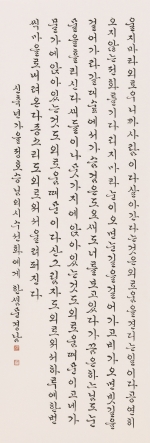 울지마라외로우니까사람이다살아간다는것은외로움을견디는일이다공연히
오지않는전화를기다리지마라눈이오면눈길을걸어가고비가오면빗길을
걸어가라갈대숲에서가슴검은도요새도너를보고있다가끔은하느님도
물을흘리신다새들이나뭇가지에앉아있는것도외로움때문이고네가
물가에앉아있는것도외로움때문이다산그림자도외로워서하루에한번
씩마을로내려온다종소리도외로워서울려퍼진다
년가을정호승님의시수선화에게 한샘